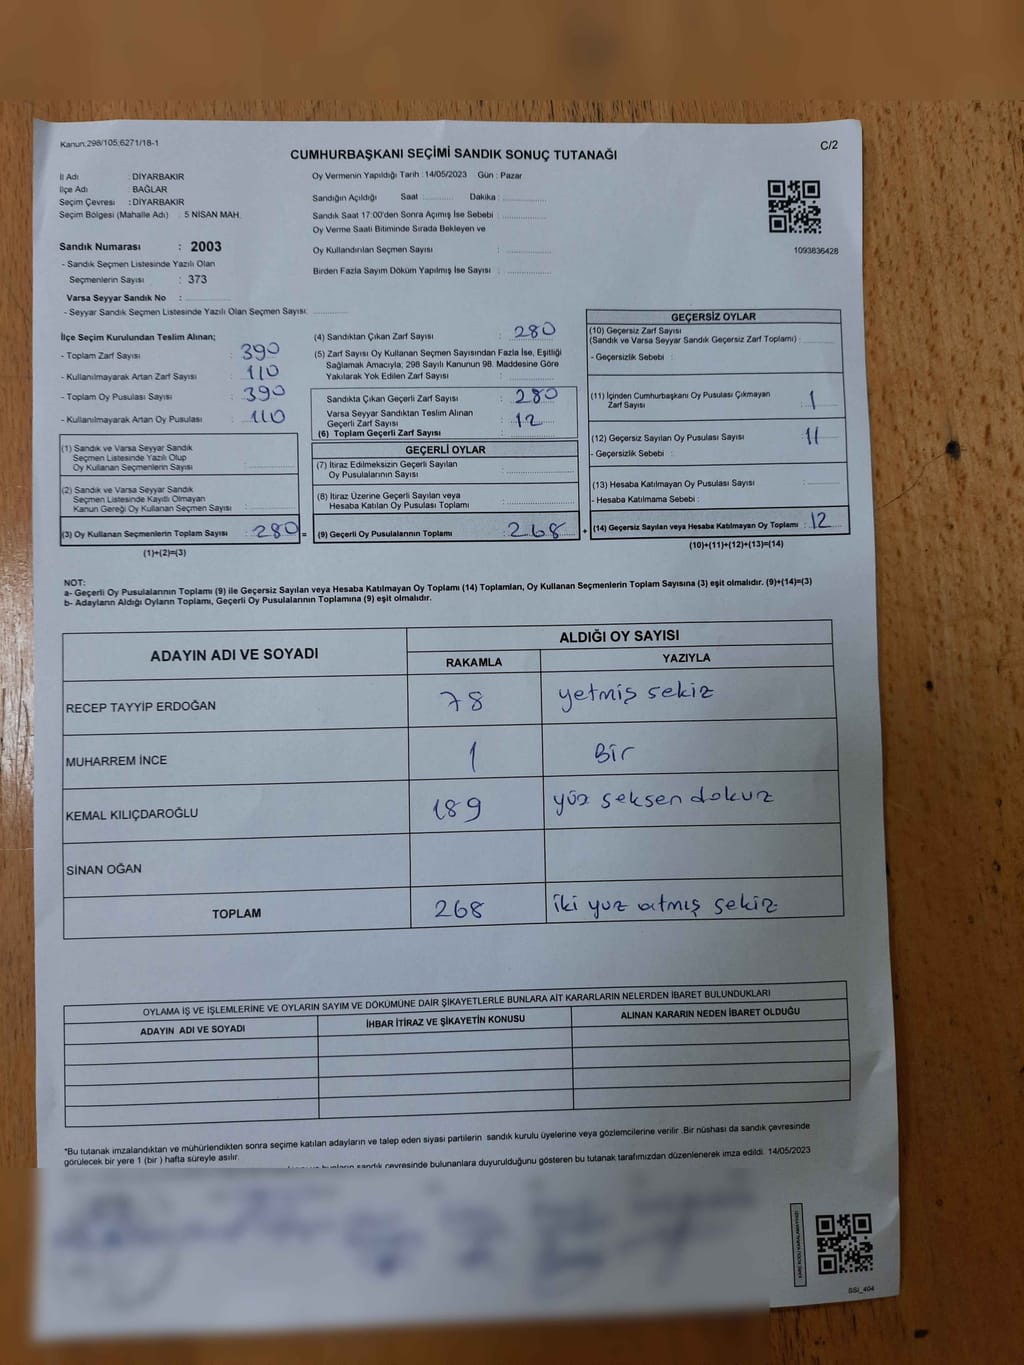 Kanun;298/105;6271/18-1
C/2
CUMHURBAŞKANI SEÇİMİ SANDIK SONUÇ TUTANAĞI
İl Adı : DİYARBAKIR
İlçe Adı : BAĞLAR
Seçim Çevresi : DİYARBAKIR
Seçim Bölgesi (Mahalle Adı) : 5 NİSAN MAH.
Sandık Numarası : 2003
- Sandık Seçmen Listesinde Yazılı Olan
Seçmenlerin Sayısı : 373
Varsa Seyyar Sandık No :
- Seyyar Sandık Seçmen Listesinde Yazılı Olan Seçmen Sayısı:
Oy Vermenin Yapıldığı Tarih : 14/05/2023 Gün : Pazar
Sandığın Açıldığı Saat : Dakika :
Sandık Saat 17:00'den Sonra Açımış İse Sebebi :
Oy Verme Saati Bitiminde Sırada Bekleyen ve
Oy Kullandırılan Seçmen Sayısı :
Birden Fazla Sayım Döküm Yapılmış İse Sayısı :
1093836428
İlçe Seçim Kurulundan Teslim Alınan;
- Toplam Zarf Sayısı : 390
- Kullanılmayarak Artan Zarf Sayısı : 110
- Toplam Oy Pusulası Sayısı : 390
- Kullanılmayarak Artan Oy Pusulası : 110
(1) Sandık ve Varsa Seyyar Sandık
Seçmen Listesinde Yazılı Olup
Oy Kullanan Seçmenlerin Sayısı :
(2) Sandık ve Varsa Seyyar Sandık
Seçmen Listesinde Kayıtlı Olmayan
Kanun Gereği Oy Kullanan Seçmen Sayısı :
(3) Oy Kullanan Seçmenlerin Toplam Sayısı : 280 =
(1)+(2)=(3)
(4) Sandıktan Çıkan Zarf Sayısı : 280
(5) Zarf Sayısı Oy Kullanan Seçmen Sayısından Fazla İse, Eşitliği
Sağlamak Amacıyla; 298 Sayılı Kanunun 98. Maddesine Göre
Yakılarak Yok Edilen Zarf Sayısı :
Sandıkta Çıkan Geçerli Zarf Sayısı : 280
Varsa Seyyar Sandıktan Teslim Alınan
Geçerli Zarf Sayısı : 12
(6) Toplam Geçerli Zarf Sayısı :
GEÇERLİ OYLAR
(7) İtiraz Edilmeksizin Geçerli Sayılan
Oy Pusulalarının Sayısı :
(8) İtiraz Üzerine Geçerli Sayılan veya
Hesaba Katılan Oy Pusulası Toplamı :
(9) Geçerli Oy Pusulalarının Toplamı : 268 +
GEÇERSİZ OYLAR
(10) Geçersiz Zarf Sayısı
(Sandık ve Varsa Seyyar Sandık Geçersiz Zarf Toplamı) :
- Geçersizlik Sebebi :
(11) İçinden Cumhurbaşkanı Oy Pusulası Çıkmayan
Zarf Sayısı : 1
(12) Geçersiz Sayılan Oy Pusulası Sayısı : 11
- Geçersizlik Sebebi :
(13) Hesaba Katılmayan Oy Pusulası Sayısı :
- Hesaba Katılmama Sebebi :
(14) Geçersiz Sayılan veya Hesaba Katılmayan Oy Toplamı : 12
(10)+(11)+(12)+(13)=(14)
NOT:
a- Geçerli Oy Pusulalarının Toplamı (9) ile Geçersiz Sayılan veya Hesaba Katılmayan Oy Toplamı (14) Toplamları, Oy Kullanan Seçmenlerin Toplam Sayısına (3) eşit olmalıdır. (9)+(14)=(3)
b- Adayların Aldığı Oyların Toplamı, Geçerli Oy Pusulalarının Toplamına (9) eşit olmalıdır.
ADAYIN ADI VE SOYADI
ALDIĞI OY SAYISI
RAKAMLA YAZIYLA
RECEP TAYYİP ERDOĞAN 78 yetmiş sekiz
MUHARREM İNCE 1 Bir
KEMAL KILIÇDAROĞLU 189 yüz seksen dokuz
SİNAN OĞAN
TOPLAM 268 iki yuz atmış sekiz
OYLAMA İŞ VE İŞLEMLERİNE VE OYLARIN SAYIM VE DÖKÜMÜNE DAİR ŞİKAYETLERLE BUNLARA AİT KARARLARIN NELERDEN İBARET BULUNDUKLARI
ADAYIN ADI VE SOYADI İHBAR İTİRAZ VE ŞİKAYETİN KONUSU ALINAN KARARIN NEDEN İBARET OLDUĞU
*Bu tutanak imzalandıktan ve mühürlendikten sonra seçime katılan adayların ve talep eden siyasi partilerin sandık kurulu üyelerine veya gözlemcilerine verilir .Bir nüshası da sandık çevresinde
görülecek bir yere 1 (bir ) hafta süreyle asılır.
sandık çevresinde bulunanlara duyurulduğunu gösteren bu tutanak tarafımızdan düzenlenerek imza edildi. 14/05/2023
SSİ_404